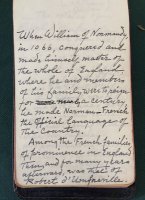 When William of Normandy,
in 1066, conquered and
made himself master of
the whole of England
where he and members
of his family were to reign
for a century,
he made Norman-French
the official Language of
the Country.
Among the French families
of prominence in England
then, and for many years
afterward, was that of
Robert d'Umfreville